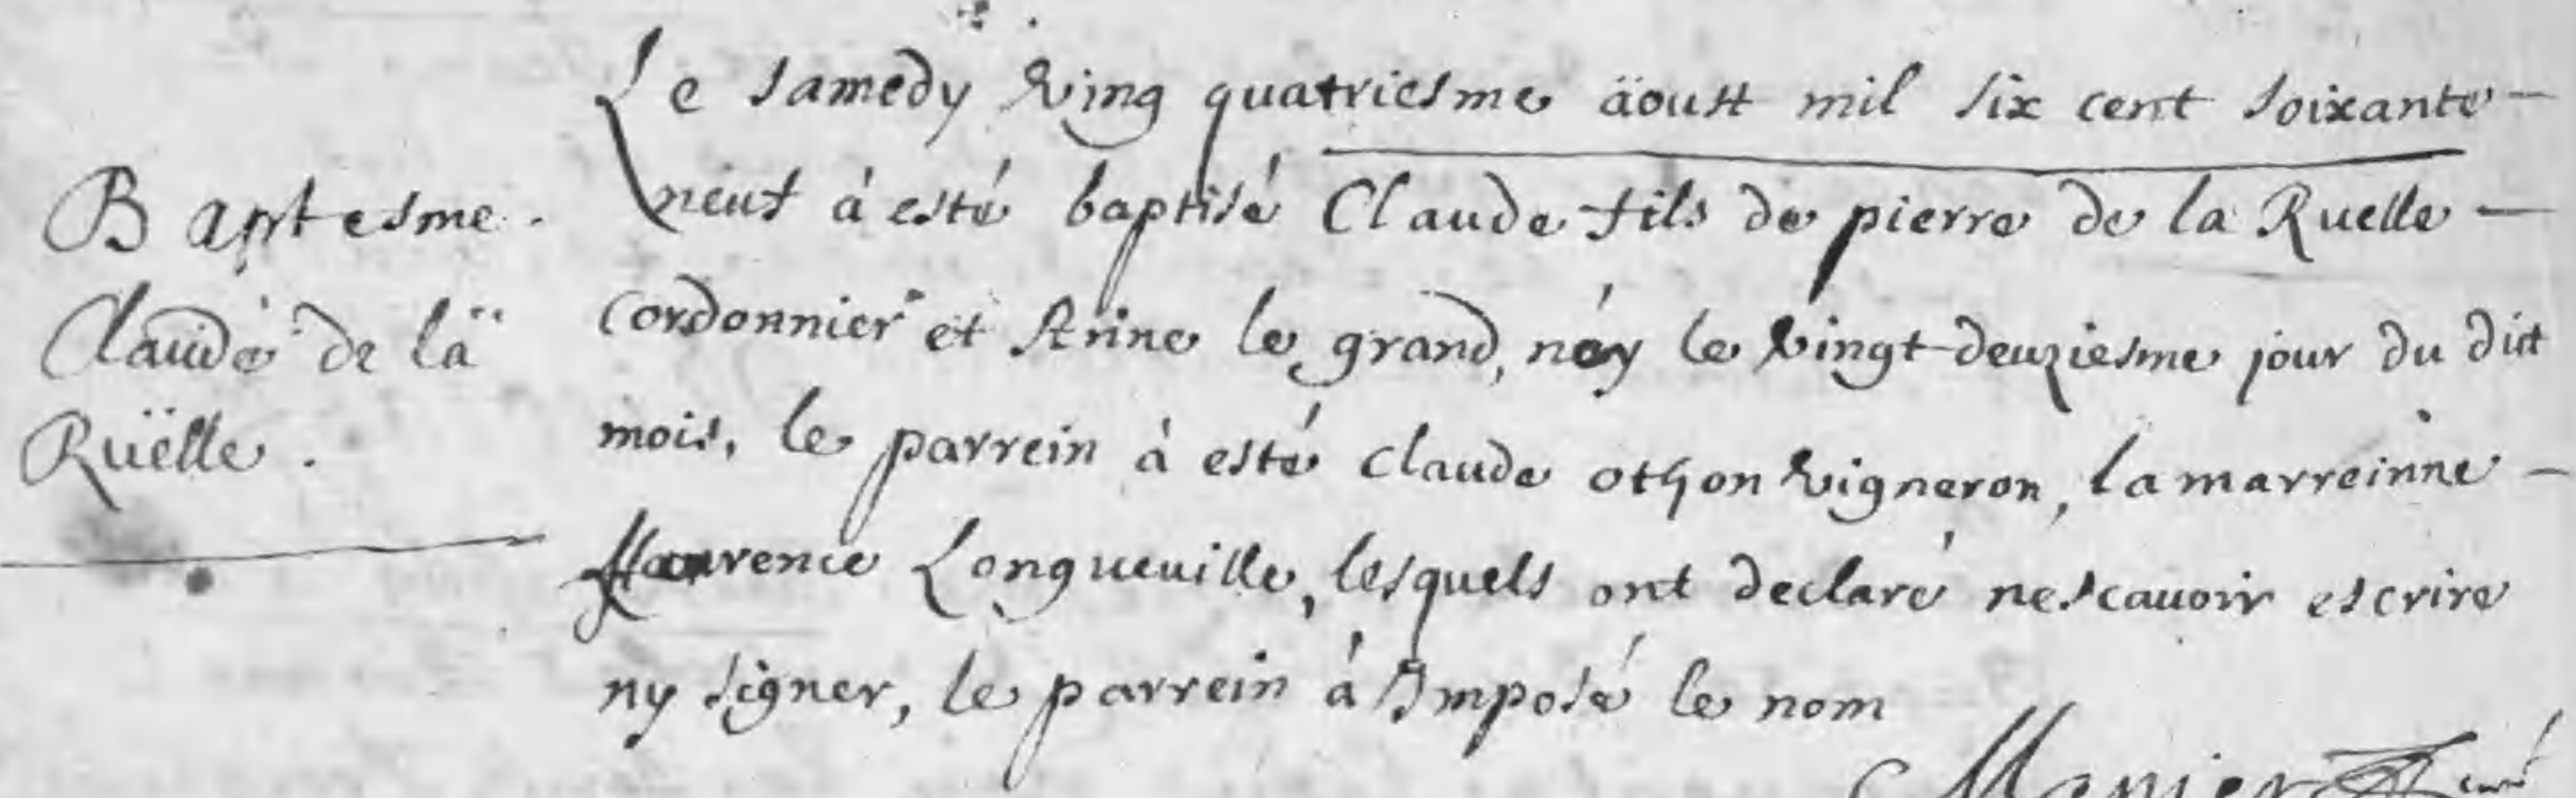 Baptesme.
Claude de lä
Ruëlle.
Le samedy ving quatriesme äoust mil six cent soixante -
neuf à esté baptisé Claude fils de pierre de la Ruelle -
cordonnier et Anne le grand, néy le vingt deuziesme jour du dict
mois, le parrein à esté claude othon vigneron, la marreinne -
Longueuille, lesquels ont declaré nescauoir escrire
ny signer, le parrein à Imposé le nom
Manier curé